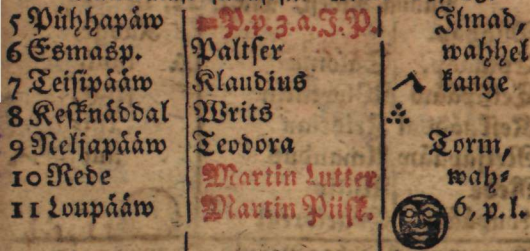 5 Pühhapääw =P.p.z.a.J.P. Ilmad,
6 Esmasp. Paltser wahhel
7 Teisipääw Klaudius kange
8 Kesknäddal Writs
9 Neljapääw Teodora Torm,
10 Rede Martin Lutter wah-
11 Loupääw Martin Piisk. 6, p.l.